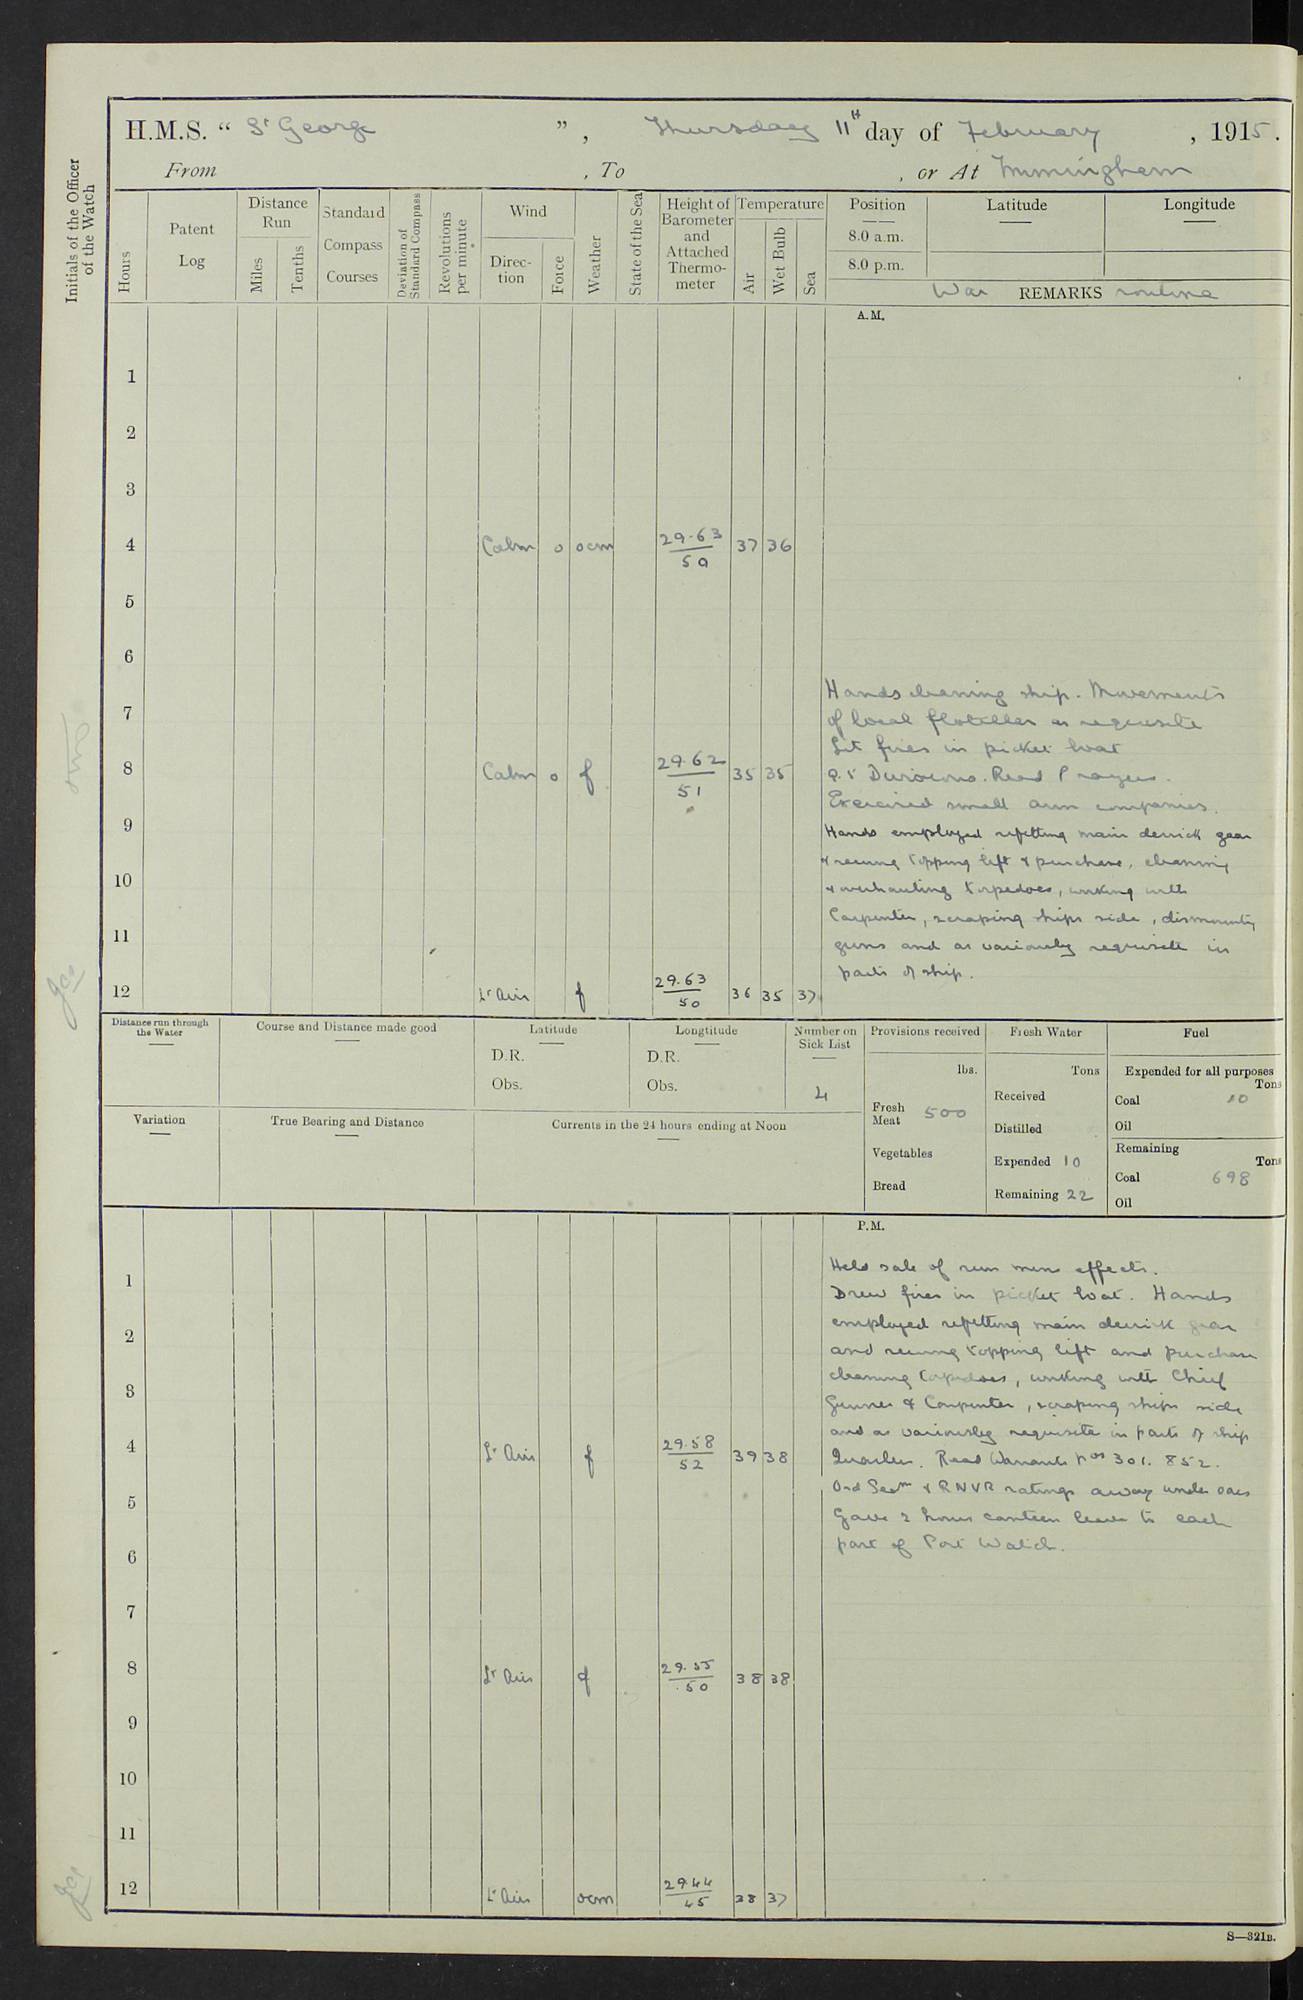 H.M.S. “ St George ” , Thursday 11th day of February , 1915 .
From , To , or At Immingham
Initials of the Officer of the Watch
Hours
Patent Log
Distance Run
Miles
Tenths
Standard Compass Courses
Deviation of Standard Compass
Revolutions per minute
Wind
Direction
Force
Weather
State of the Sea
Height of Barometer and Attached Thermometer
Temperature
Air
Wet Bulb
Sea
Position
8.0 a.m.
8.0 p.m.
Latitude
Longitude
War REMARKS routine
A.M.
1
2
3
4 Calm 0 ocm 29.63 50 37 36
5
6
Hands cleaning ship. Movements
7
of local flotillas as requisite
Lit fires in picket boat
8 Calm 0 f 29.62 51 35 35
Divisions. Read Prayers.
Exercised small arm companies.
9
Hands employed refitting main derrick gear
& reeving topping lift & purchase, cleaning
10
& overhauling torpedoes, working with
Carpenter, scraping ships side, dismounting
11
guns and as variously requisite in
parts of ship.
12 Lt Airs f 29.63 50 36 35 37
Distance run through the Water
Course and Distance made good
Latitude
D.R.
Obs.
Longtitude
D.R.
Obs.
Number on Sick List
4
Provisions received
lbs.
Fresh Meat 500
Vegetables
Bread
Fresh Water
Tons
Received
Distilled
Expended 10
Remaining 22
Fuel
Expended for all purposes
Tons
Coal 10
Oil
Remaining
Tons
Coal 698
Oil
Variation
True Bearing and Distance
Currents in the 24 hours ending at Noon
P.M.
Held sale of run mens effects.
1
Drew fires in picket boat. Hands
employed refitting main derrick gear
2
and reeving topping lift and purchase
cleaning torpedoes, working with Chief
3
Gunner & Carpenter, scraping ships side
and as variously requisite in parts of ship
4 Lt Airs f 29.58 52 39 38
Quarters. Read Warrants Nos 301. 852.
Ord Seamn & RNVR ratings away under oars
5
Gave 2 hours canteen leave to each
part of Port Watch.
6
7
8 Lt Airs f 29.55 50 38 38
9
10
11
12 Lt Airs ocm 29.44 45 38 37
S—321B.